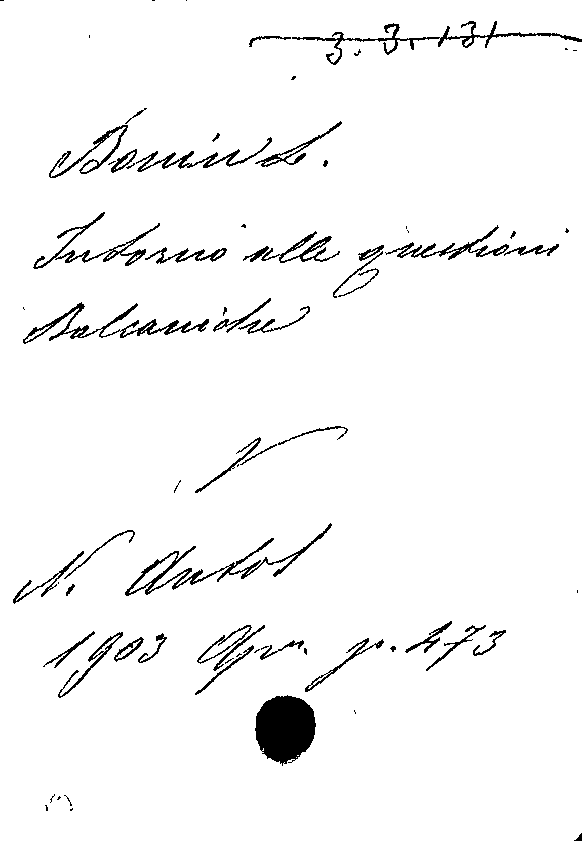 3. 3. 131
Bonin L.
Intorno alle questioni
Balcaniche
V
N. Antol
1903 Apr. p. 473